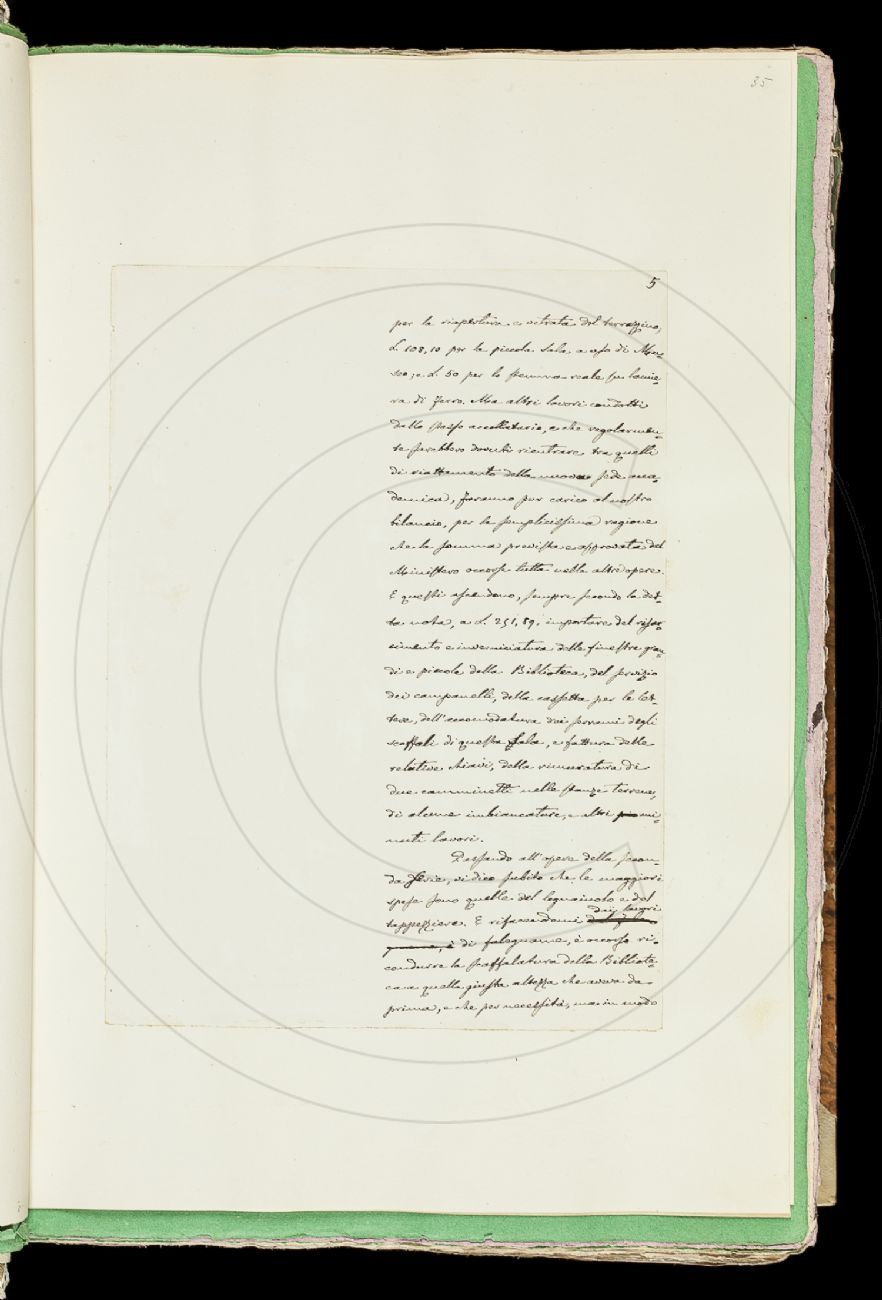 85
5
per la riapertura e vetrata del terrazzino,
L. 108,10 per la piccola sala a uso di Mu-
seo; e L. 50 per lo stemma reale su lamie-
ra di ferro. Ma altri lavori condotti
dallo stesso accollatario, e che regolarmen-
te sarebbero dovuti rientrare tra quelli
di riattamento della nuova sede acca-
demica, saranno pur carico al nostro
bilancio, per la semplicissima ragione
che la somma prevista e approvata dal
Ministero occorse tutta nelle altre opere.
E questi ascendono, sempre secondo la det-
ta nota, a L. 251,89; importare del risar-
cimento e inverniciatura delle finestre gran-
di e piccole della Biblioteca, del servizio
dei campanelli, della cassetta per le let-
tere, dell'accomodatura dei serrami degli
scaffali di questa Sala, e fattura delle
relative chiavi, della rimuratura di
due camminetti nelle stanze terrene,
di alcune imbiancature, e altri mi-
nuti lavori.
Passando all'opere della secon-
da Serie, vi dico subito che le maggiori
spese sono quelle del legnaiuolo e del
dei lavori
tappezziere. E rifacendomi
di falegname, è occorso ri-
condurre la scaffalatura della Bibliote-
ca a quella giusta altezza che aveva da
prima, e che per necessità, ma in modo